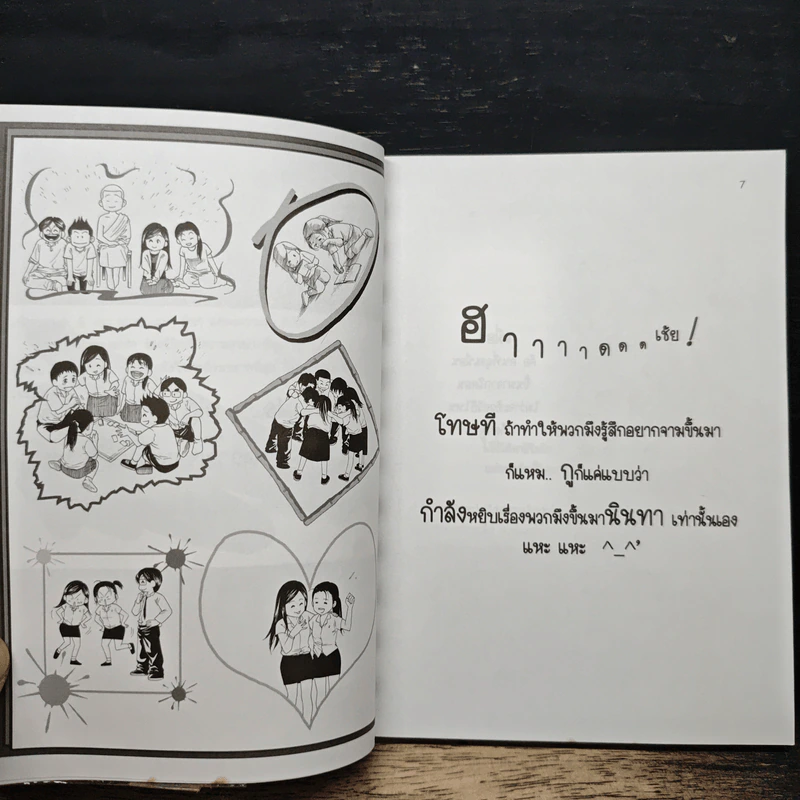 7
ฮาาาาดดดดเช้ย!
โทษที ถ้าทำให้พวกมึงรู้สึกอยากจามขึ้นมา
ก็แหม.. กูก็แค่แบบว่า
กำลังหยิบเรื่องพวกมึงขึ้นมานินทา เท่านั้นเอง
แหะ แหะ ^_^'